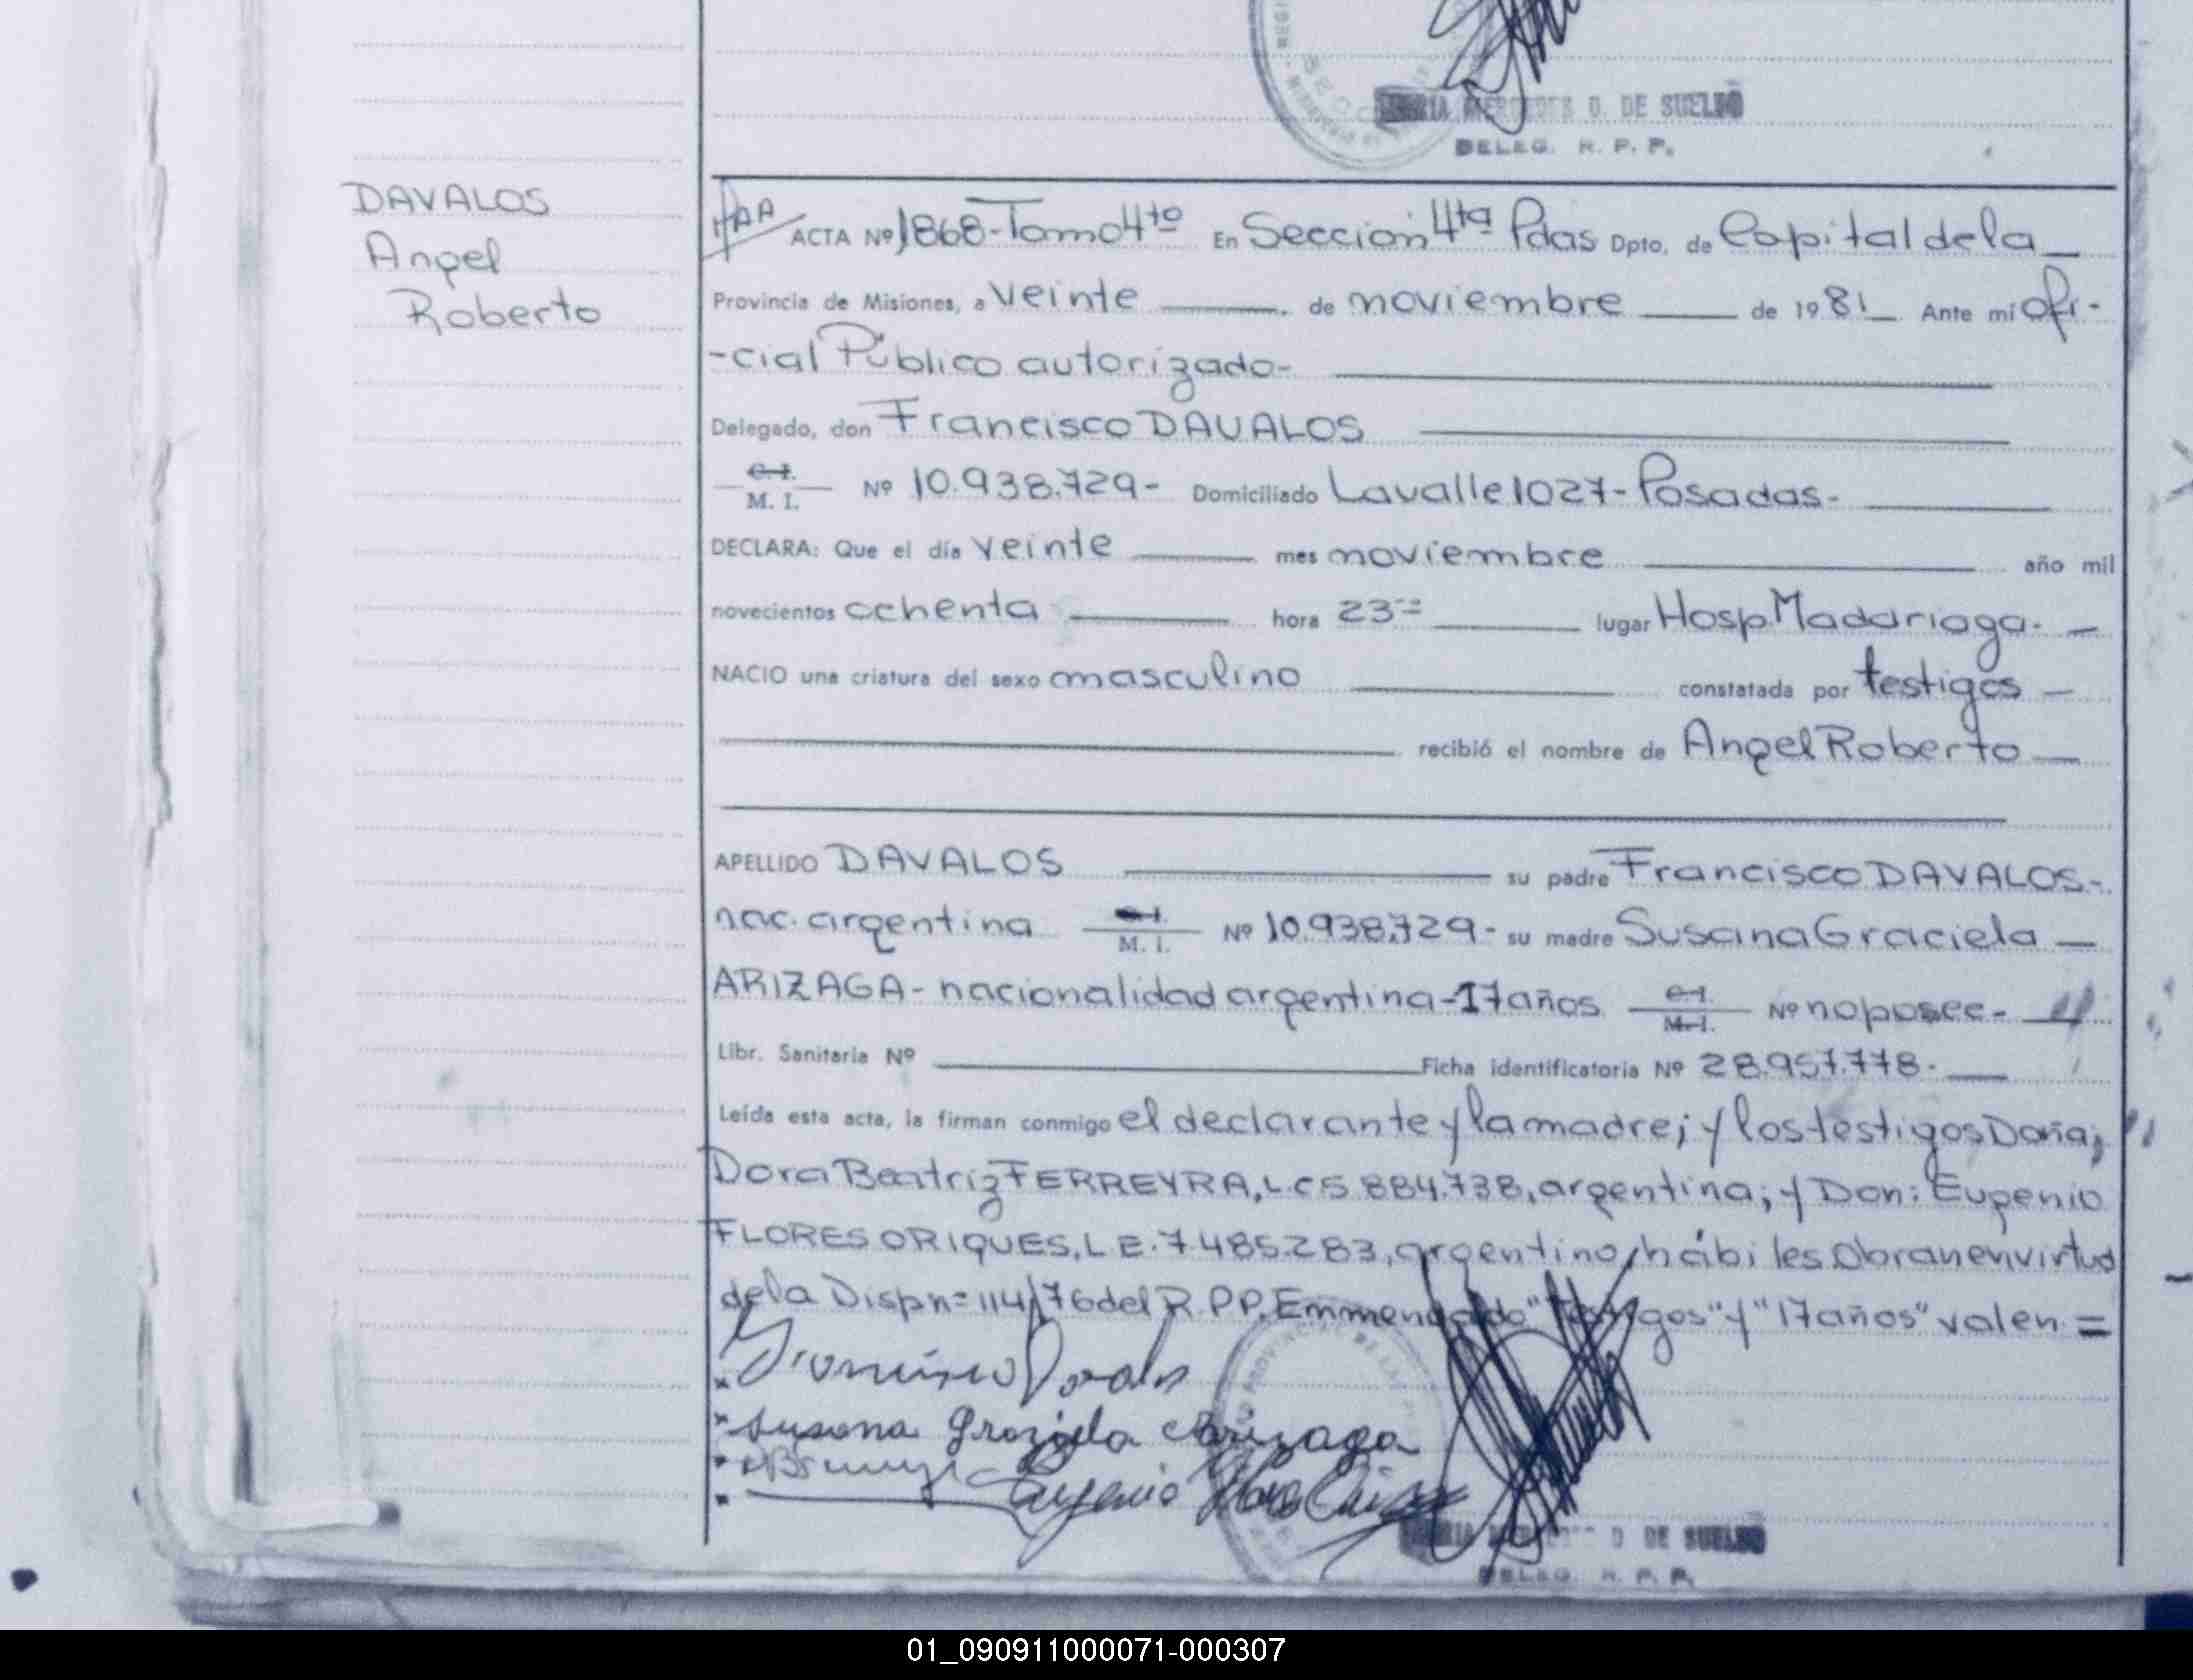 MARIA MERCEDES D. DE SUELDO
DELEG. R. P. P.
DAVALOS
Angel
Roberto
ACTA Nº 1868-Tomo 4to En Sección 4ta Pdas Dpto. de Capital de la
Provincia de Misiones, a veinte de noviembre de 1981 Ante mi ofi-
-cial Público autorizado-
Delegado, don Francisco DAVALOS
C. I. M. I. Nº 10.938.729- Domiciliado Lavalle 1027-Posadas-
DECLARA: Que el día veinte mes noviembre año mil
novecientos ochenta hora 23 lugar Hosp Madariaga-
NACIO una criatura del sexo masculino constatada por testigos
recibió el nombre de Angel Roberto
APELLIDO DAVALOS su padre Francisco DAVALOS-
nac. argentina C. I. M. I. Nº 10.938.729- su madre Susana Graciela
ARIZAGA- nacionalidad argentina-17 años C. I. M. I. Nº no posee-
Libr. Sanitaria Nº Ficha identificatoria Nº 28.957.778-
Leída esta acta, la firman conmigo el declarante y la madre; y los testigos Doña;
Dora Beatriz FERREYRA, L.C 5.884.738, argentina; y Don: Eugenio
FLORES ORIQUES, L E. 7.485.283, argentino, hábiles. Obran en virtud
de la Disp n= 114/76 del R.P.P. Emmendado "testigos" y "17 años" valen =
Susana Graziela Arizaga
Eugenio
D. DE SUELDO
DELEG. R. P. P.
01_090911000071-000307